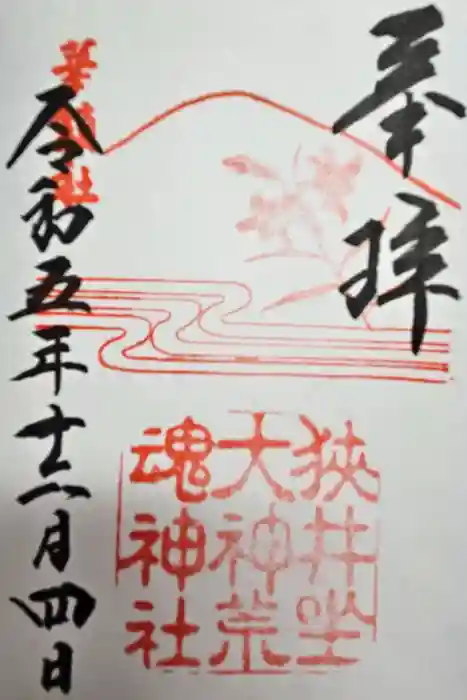 奉拝
狹井坐
大神荒
魂神社
令和五年十二月四日